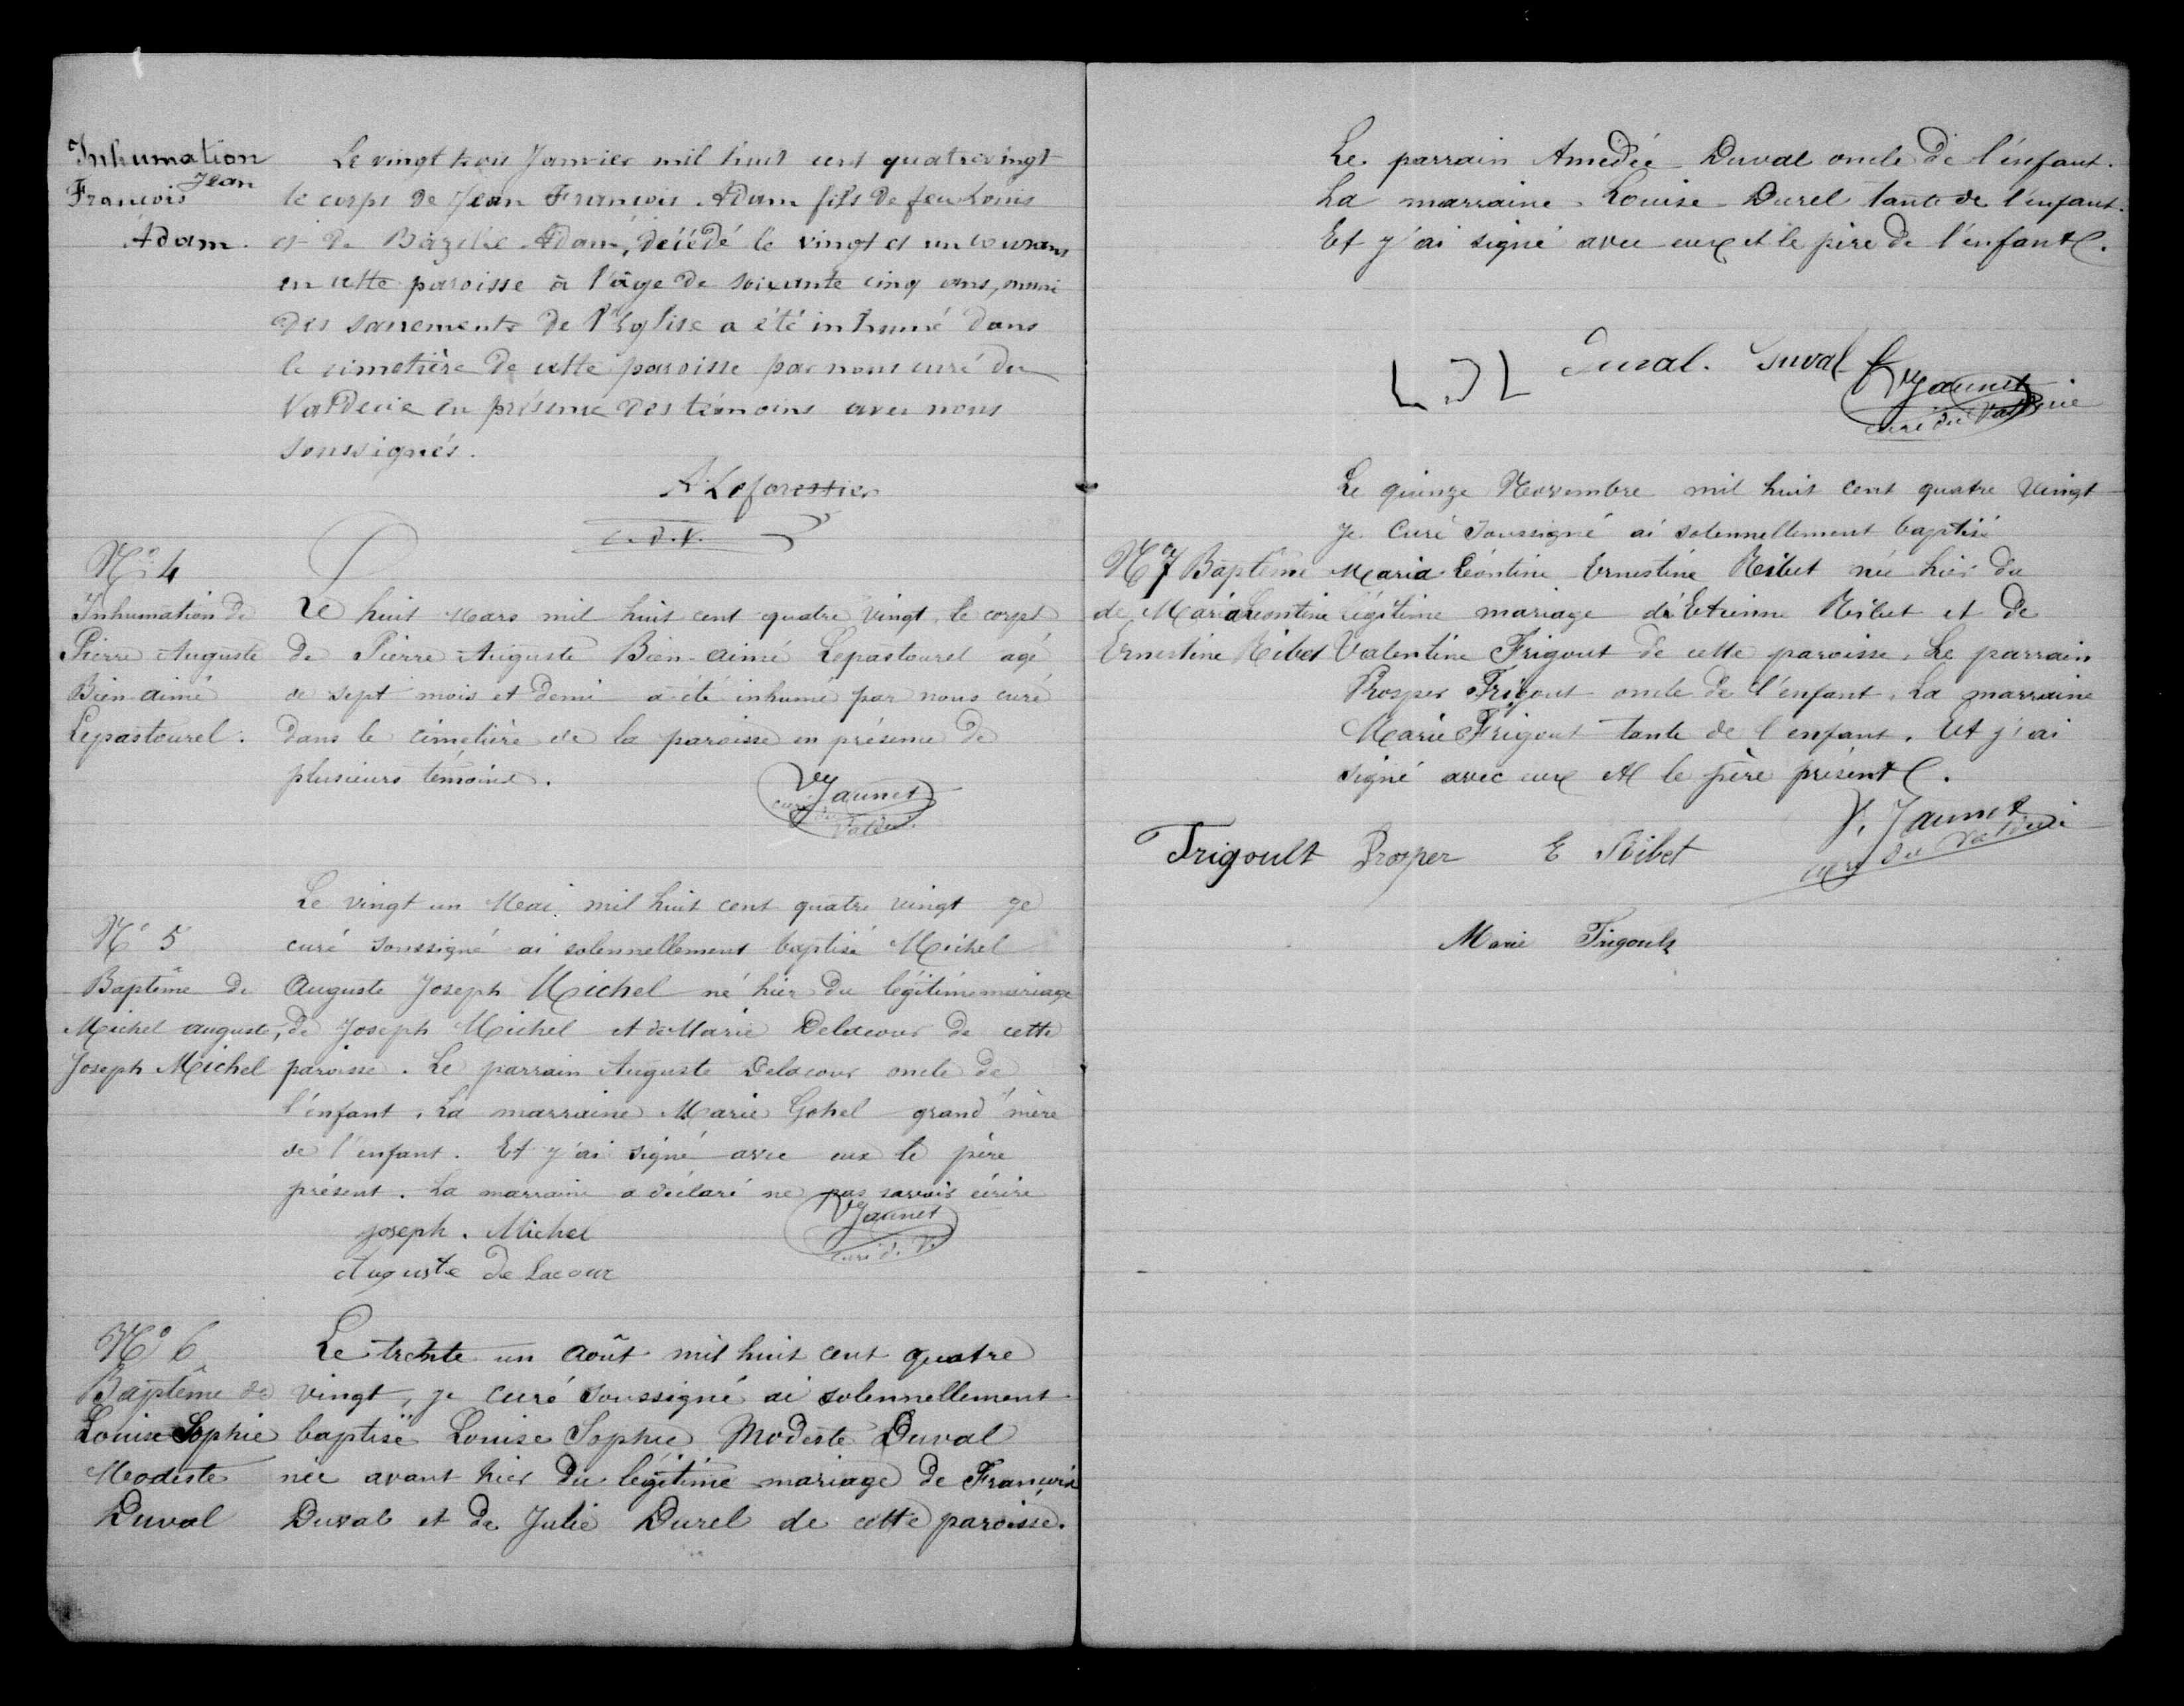 Inhumation
Jean
François
Adam.
Le vingt trois Janvier mil huit cent quatre vingt
le corps de Jean François Adam fils de feu Louis
et de Bazilie Adam, décédé le vingt et un courant
en cette paroisse à l'âge de soixante cinq ans, muni
des sacrements de l'Eglise a été inhumé dans
le cimetière de cette paroisse par nous curé du
Valdecie en présence des témoins avec nous
soussignés.
A. Leforestier
c. d. V.
N° 4
Inhumation de
Pierre Auguste
Bien-aimé
Lepastourel.
Le huit Mars mil huit cent quatre vingt, le corps
de Pierre Auguste Bien-aimé Lepastourel agé
de sept mois et demi a été inhumé par nous curé
dans le cimetière de la paroisse en présence de
plusieurs témoins.
V Jaunet
curé du
Valdecie
N° 5
Baptême de
Michel auguste,
Joseph Michel
Le vingt un Mai mil huit cent quatre vingt je
curé soussigné ai solennellement baptisé Michel
Auguste Joseph Michel né hier du légitime mariage
de Joseph Michel et de Marie Delacour de cette
paroisse. Le parrain Auguste Delacour oncle de
l'enfant. La marraine Marie Gohel grand'mère
de l'enfant. Et j'ai signé avec eux le père
présent. La marraine a déclaré ne pas savoir écrire
V Jaunet
curé d. V.
Joseph. Michel
Auguste de Lacour
N° 6
Baptême de
Louise Sophie
Modeste
Duval
Le trente un Août mil huit cent quatre
vingt, je curé soussigné ai solennellement
baptisé Louise Sophie Modeste Duval
née avant hier du légitime mariage de François
Duval et de Julie Durel de cette paroisse.
Le parrain Amédée Duval oncle de l'enfant.
La marraine Louise Durel tante de l'enfant.
Et j'ai signé avec eux et le père de l'enfant.
Duval. Duval f
V Jaunet
curé du Valdecie
N° 7 Baptême
de Maria Léontine
Ernestine Ribet
Le quinze Novembre mil huit cent quatre vingt
je Curé soussigné ai solennellement baptisé
Maria Léontine Ernestine Ribet née hier du
légitime mariage d'Etienne Ribet et de
Valentine Frigout de cette paroisse. Le parrain
Prosper Frigout oncle de l'enfant. La marraine
Marie Frigout tante de l'enfant. Et j'ai
signé avec eux et le père présent.
V. Jaunet
curé du Valdecie
Frigoult Prosper E Ribet
Marie Frigoult